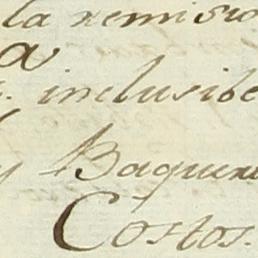 la remisio
a
inclusibe
y Baquera
Costos.